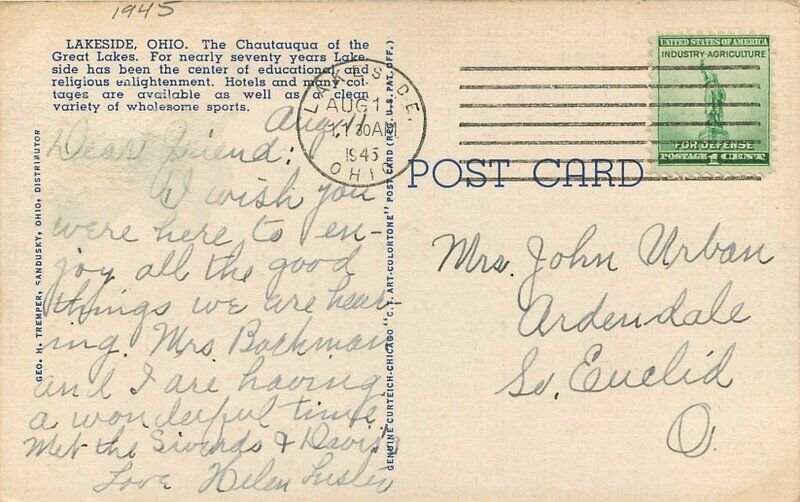 1945
LAKESIDE, OHIO. The Chautauqua of the
Great Lakes. For nearly seventy years Lake-
side has been the center of educational and
religious enlightenment. Hotels and many cot-
tages are available as well as a clean
variety of wholesome sports.
Aug. 11
Dear Friend:
I wish you
were here to en-
joy all the good
things we are hear-
ing. Mrs Bachman
and I are having
a wonderful time.
Met the Swords & Davis's
Love Helen
GEO. H. TREMPER, SANDUSKY, OHIO, DISTRIBUTOR
GENUINE CURTEICH-CHICAGO "C.T. ART-COLORTONE" POST CARD (REG. U.S. PAT. OFF.)
LAKESIDE,
AUG 11
11 30 AM
1945
OHIO
UNITED STATES OF AMERICA
INDUSTRY-AGRICULTURE
FOR DEFENSE
POSTAGE 1 CENT
POST CARD
Mrs. John Urban
Ardendale
So. Euclid
O.